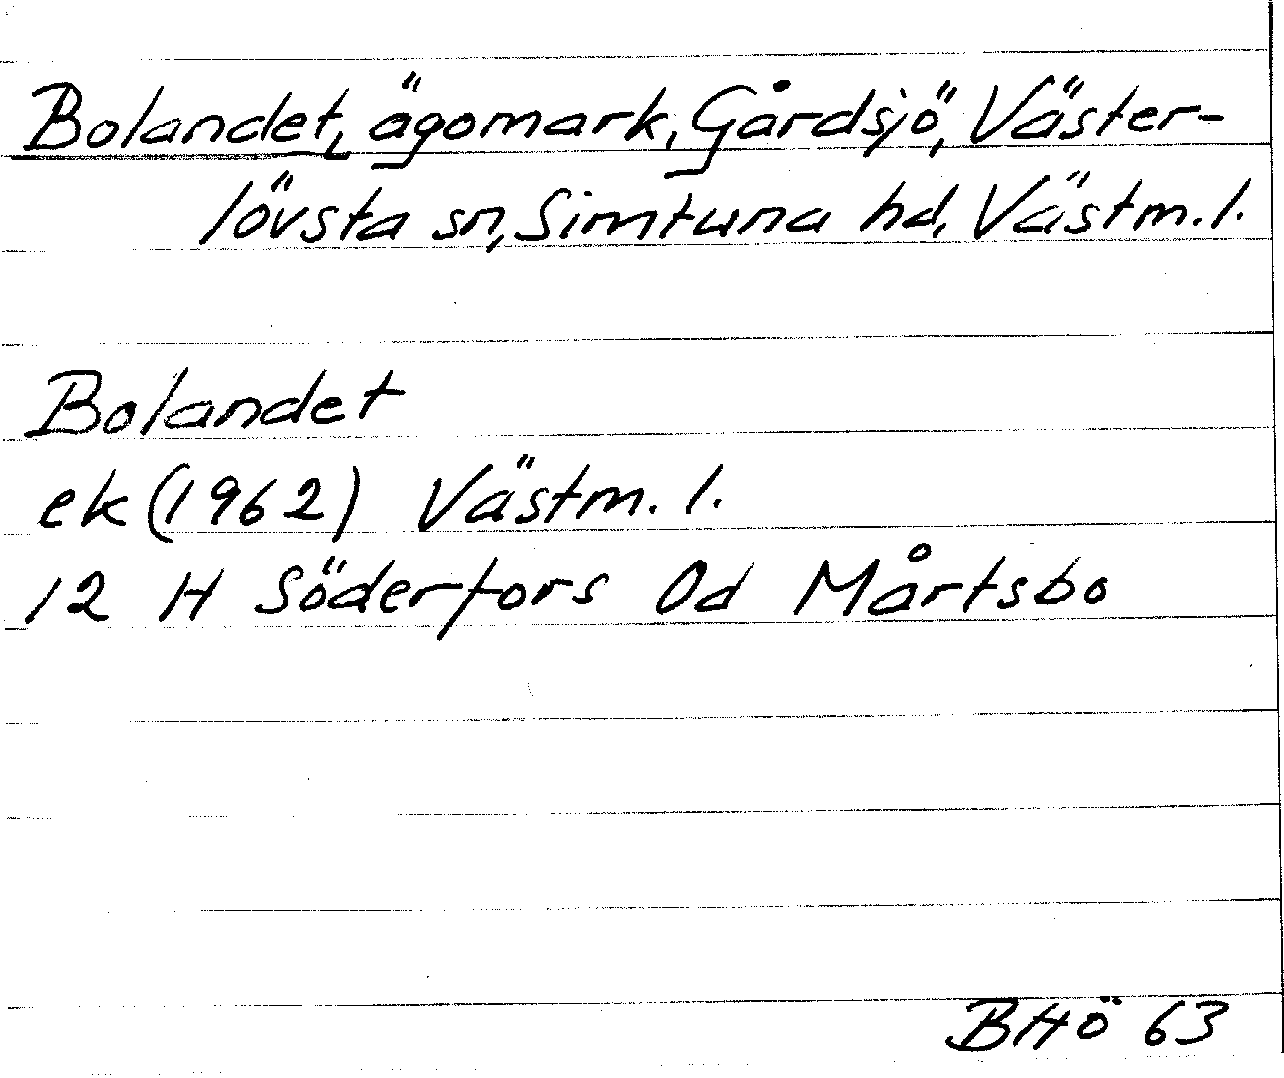 Bolandet, ägomark, Gårdsjö, Väster-
lövsta sn, Simtuna hd, Västm. l.
Bolandet
ek (1962) Västm. l.
12 H Söderfors 0d Mårtsbo
BHÖ 63